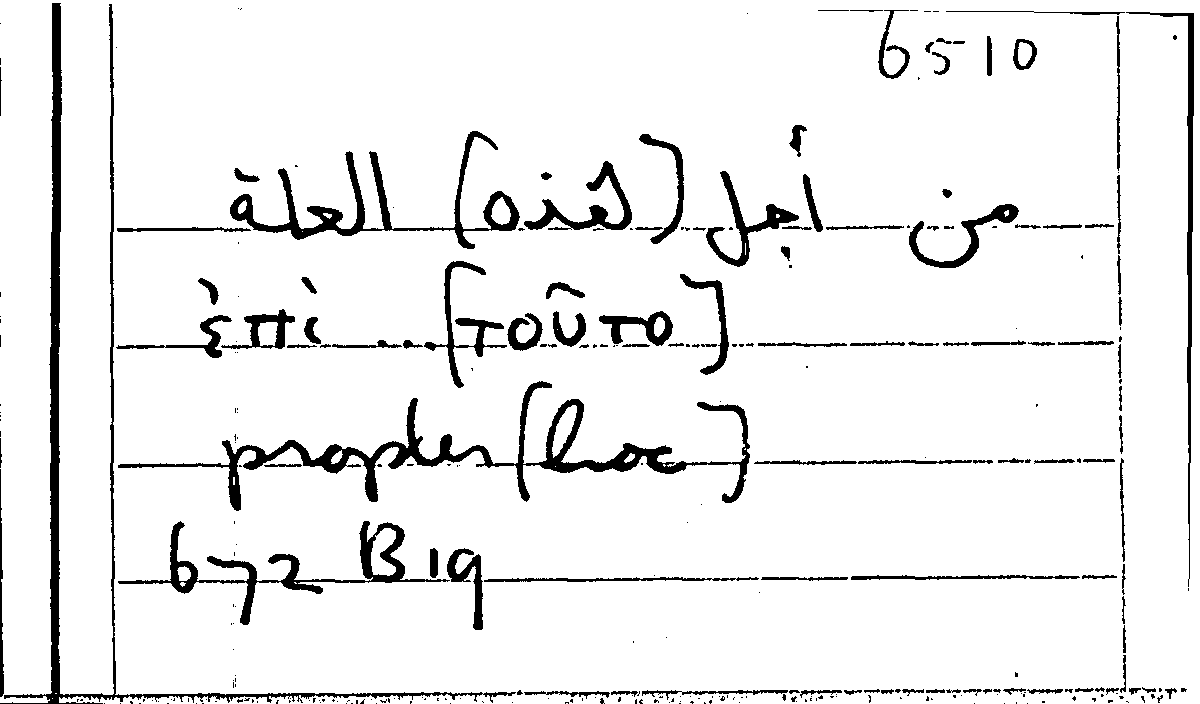 6510
من أجل (هذه) العلة
ἐπὶ ... [τοῦτο]
propter [hoc]
672 B 19